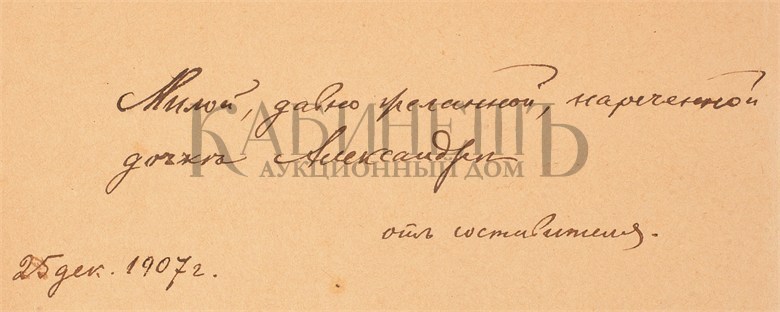 Милой, давно желанной, нареченной
дочкѣ Александрѣ
КАБИНЕТЪ
АУКЦИОННЫЙ ДОМ
отъ составителя.
25 дек. 1907 г.